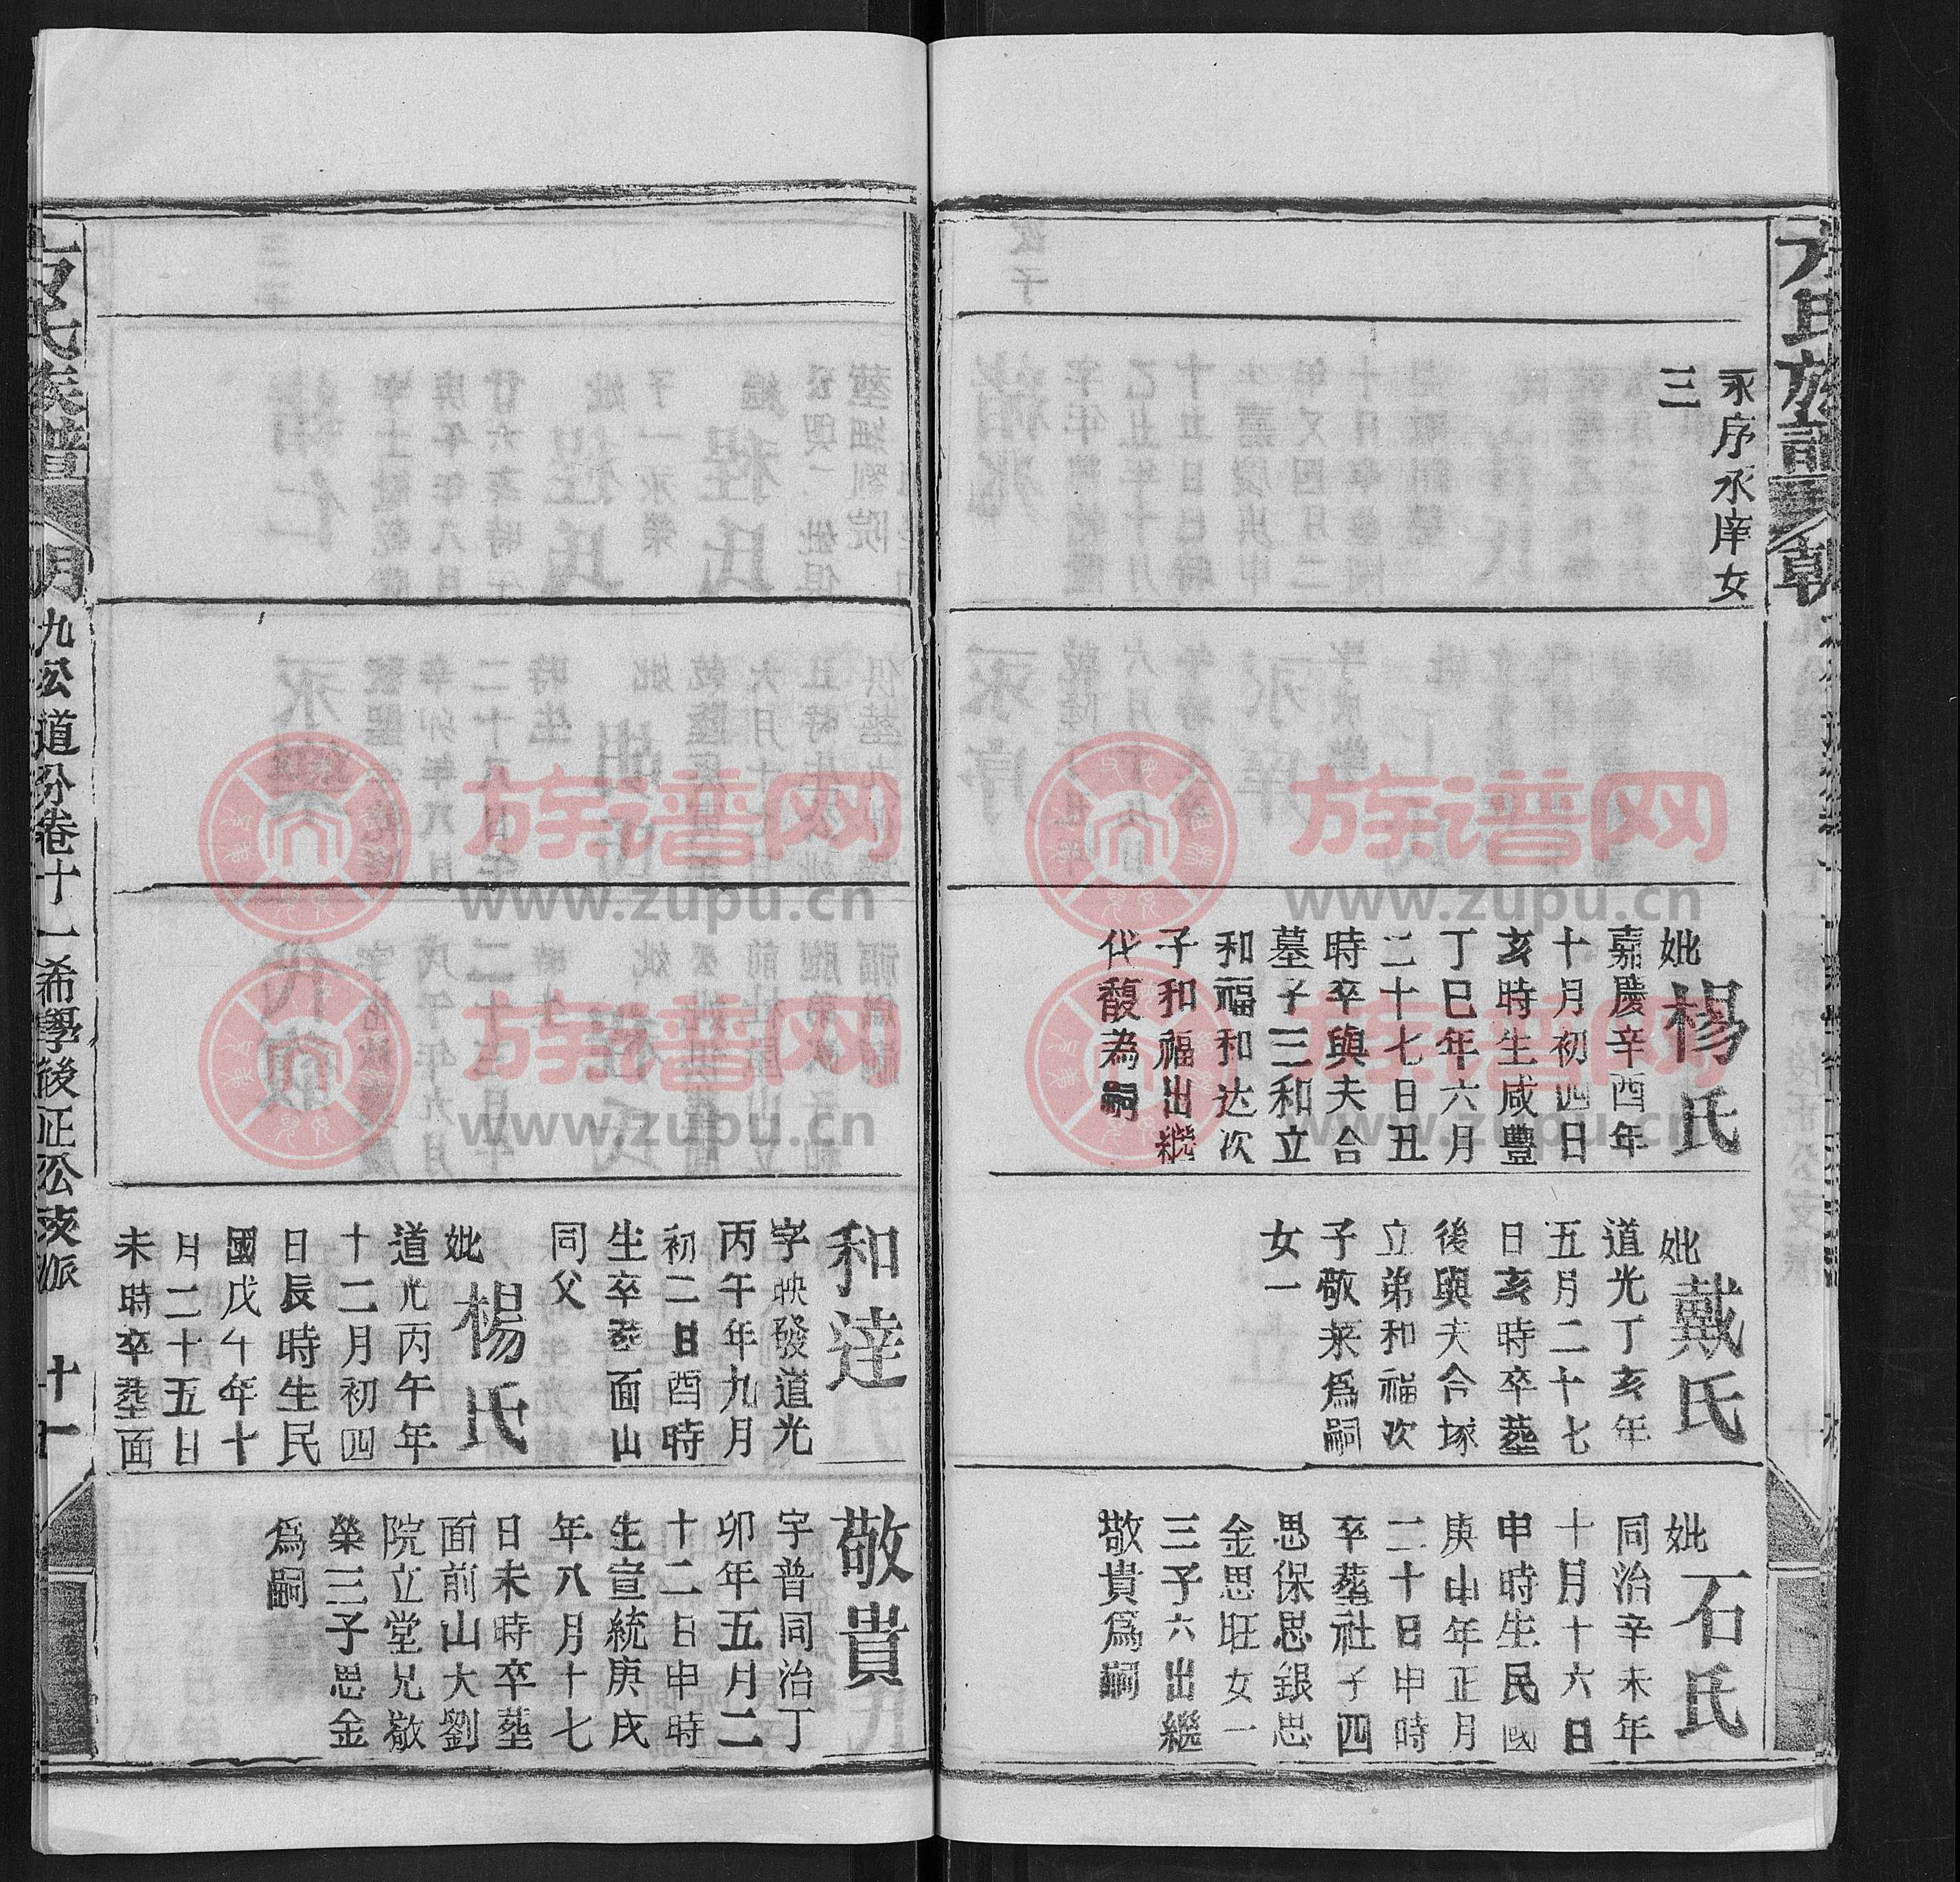 方氏族譜
朝
永序永庠女
三
妣楊氏
嘉慶辛酉年
十月初四日
亥時生咸豐
丁巳年六月
二十七日丑
時卒與夫合
墓子三和立
和福和达次
子和福出継
代馥為嗣
妣戴氏
道光丁亥年
五月二十七
日亥時卒塟
後與夫合塚
立弟和福次
子敬来爲嗣
女一
妣石氏
同治辛未年
十月十六日
申時生民國
庚申年正月
二十日申時
卒塟社子四
思保思銀思
金思旺女一
三子六出繼
敬貴爲嗣
和達
字映發道光
丙午年九月
初二日酉時
生卒塟面山
同父
妣楊氏
道光丙午年
十二月初四
日辰時生民
國戊午年十
月二十五日
未時卒塟面
敬貴
字普同治丁
卯年五月二
十二日申時
生宣統庚戌
年八月十七
日未時卒塟
面前山大劉
院立堂兄敬
榮三子思金
爲嗣
方氏族譜
明九公道分卷十一希學後正公支派
十一
族谱网
www.zupu.cn
族谱网
www.zupu.cn
族谱网
www.zupu.cn
族谱网
www.zupu.cn